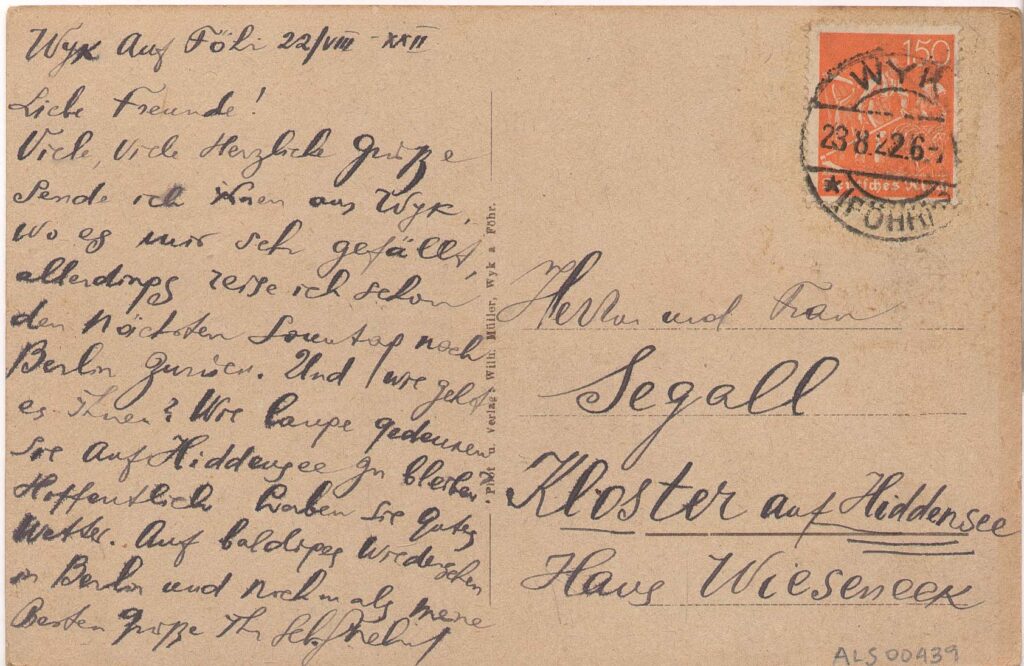 Wyk auf Föhr 22/VIII - XXII
Liebe Freunde!
Viele, viele Herzliche Grüße
sende ich Ihnen aus Wyk,
wo es mir sehr gefällt,
allerdings reise ich schon
den nächsten Sonntag nach
Berlin zurück. Und wie geht
es Ihnen? Wie lange gedenken
Sie auf Hiddensee zu bleiben?
Hoffentlich haben Sie gutes
Wetter. Auf baldiges Wiedersehen
in Berlin und nochmals meine
Besten Grüße Ihr
Phot u. verlag: Wilh. Müller, Wyk a Föhr.
150
Deutsches Reich
WYK
23.8.22.6-7
* (FÖHR)
Herrn und Frau
Segall
Kloster auf Hiddensee
Haus Wieseneck
ALS00439